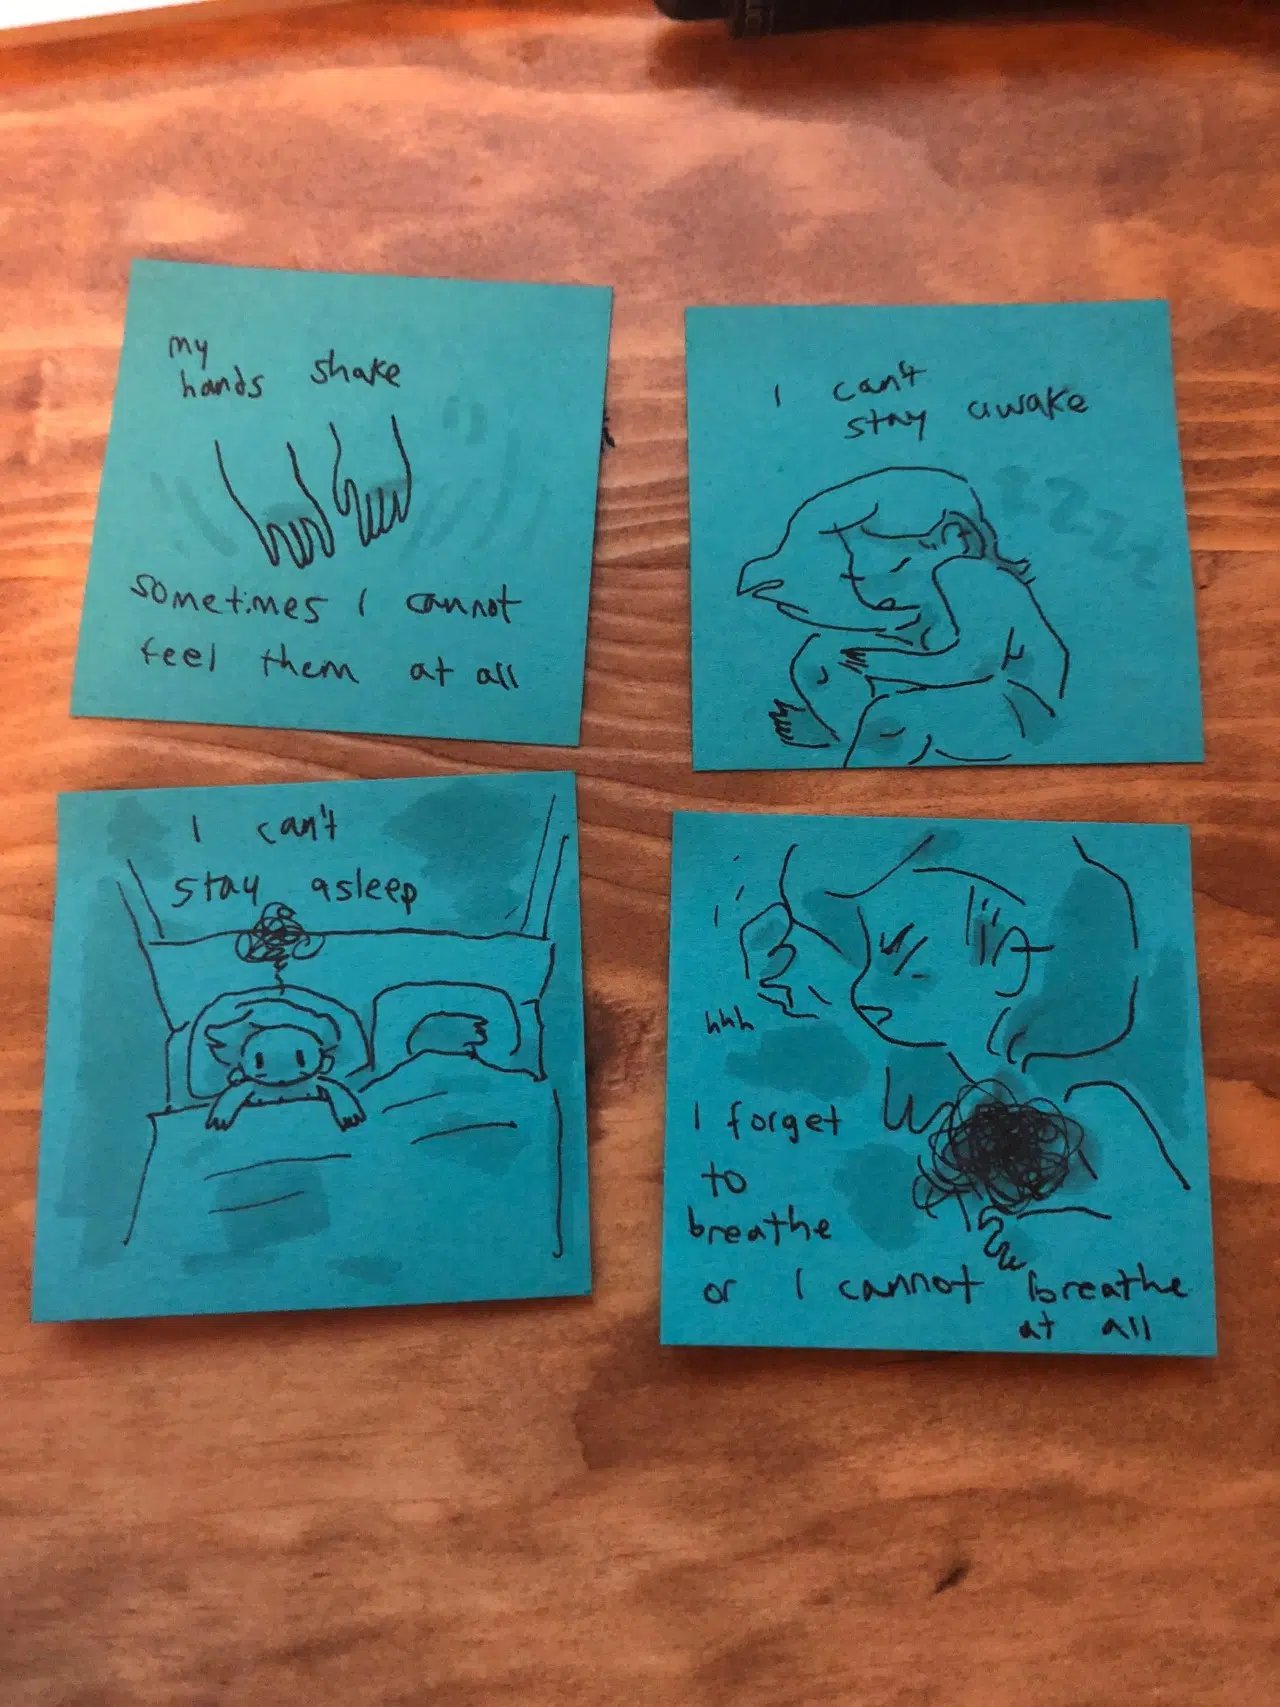 my
hands shake
sometimes I cannot
feel them at all
I can't
stay awake
zzzzz
I can't
stay asleep
hhh
I forget
to
breathe
or I cannot breathe
at all